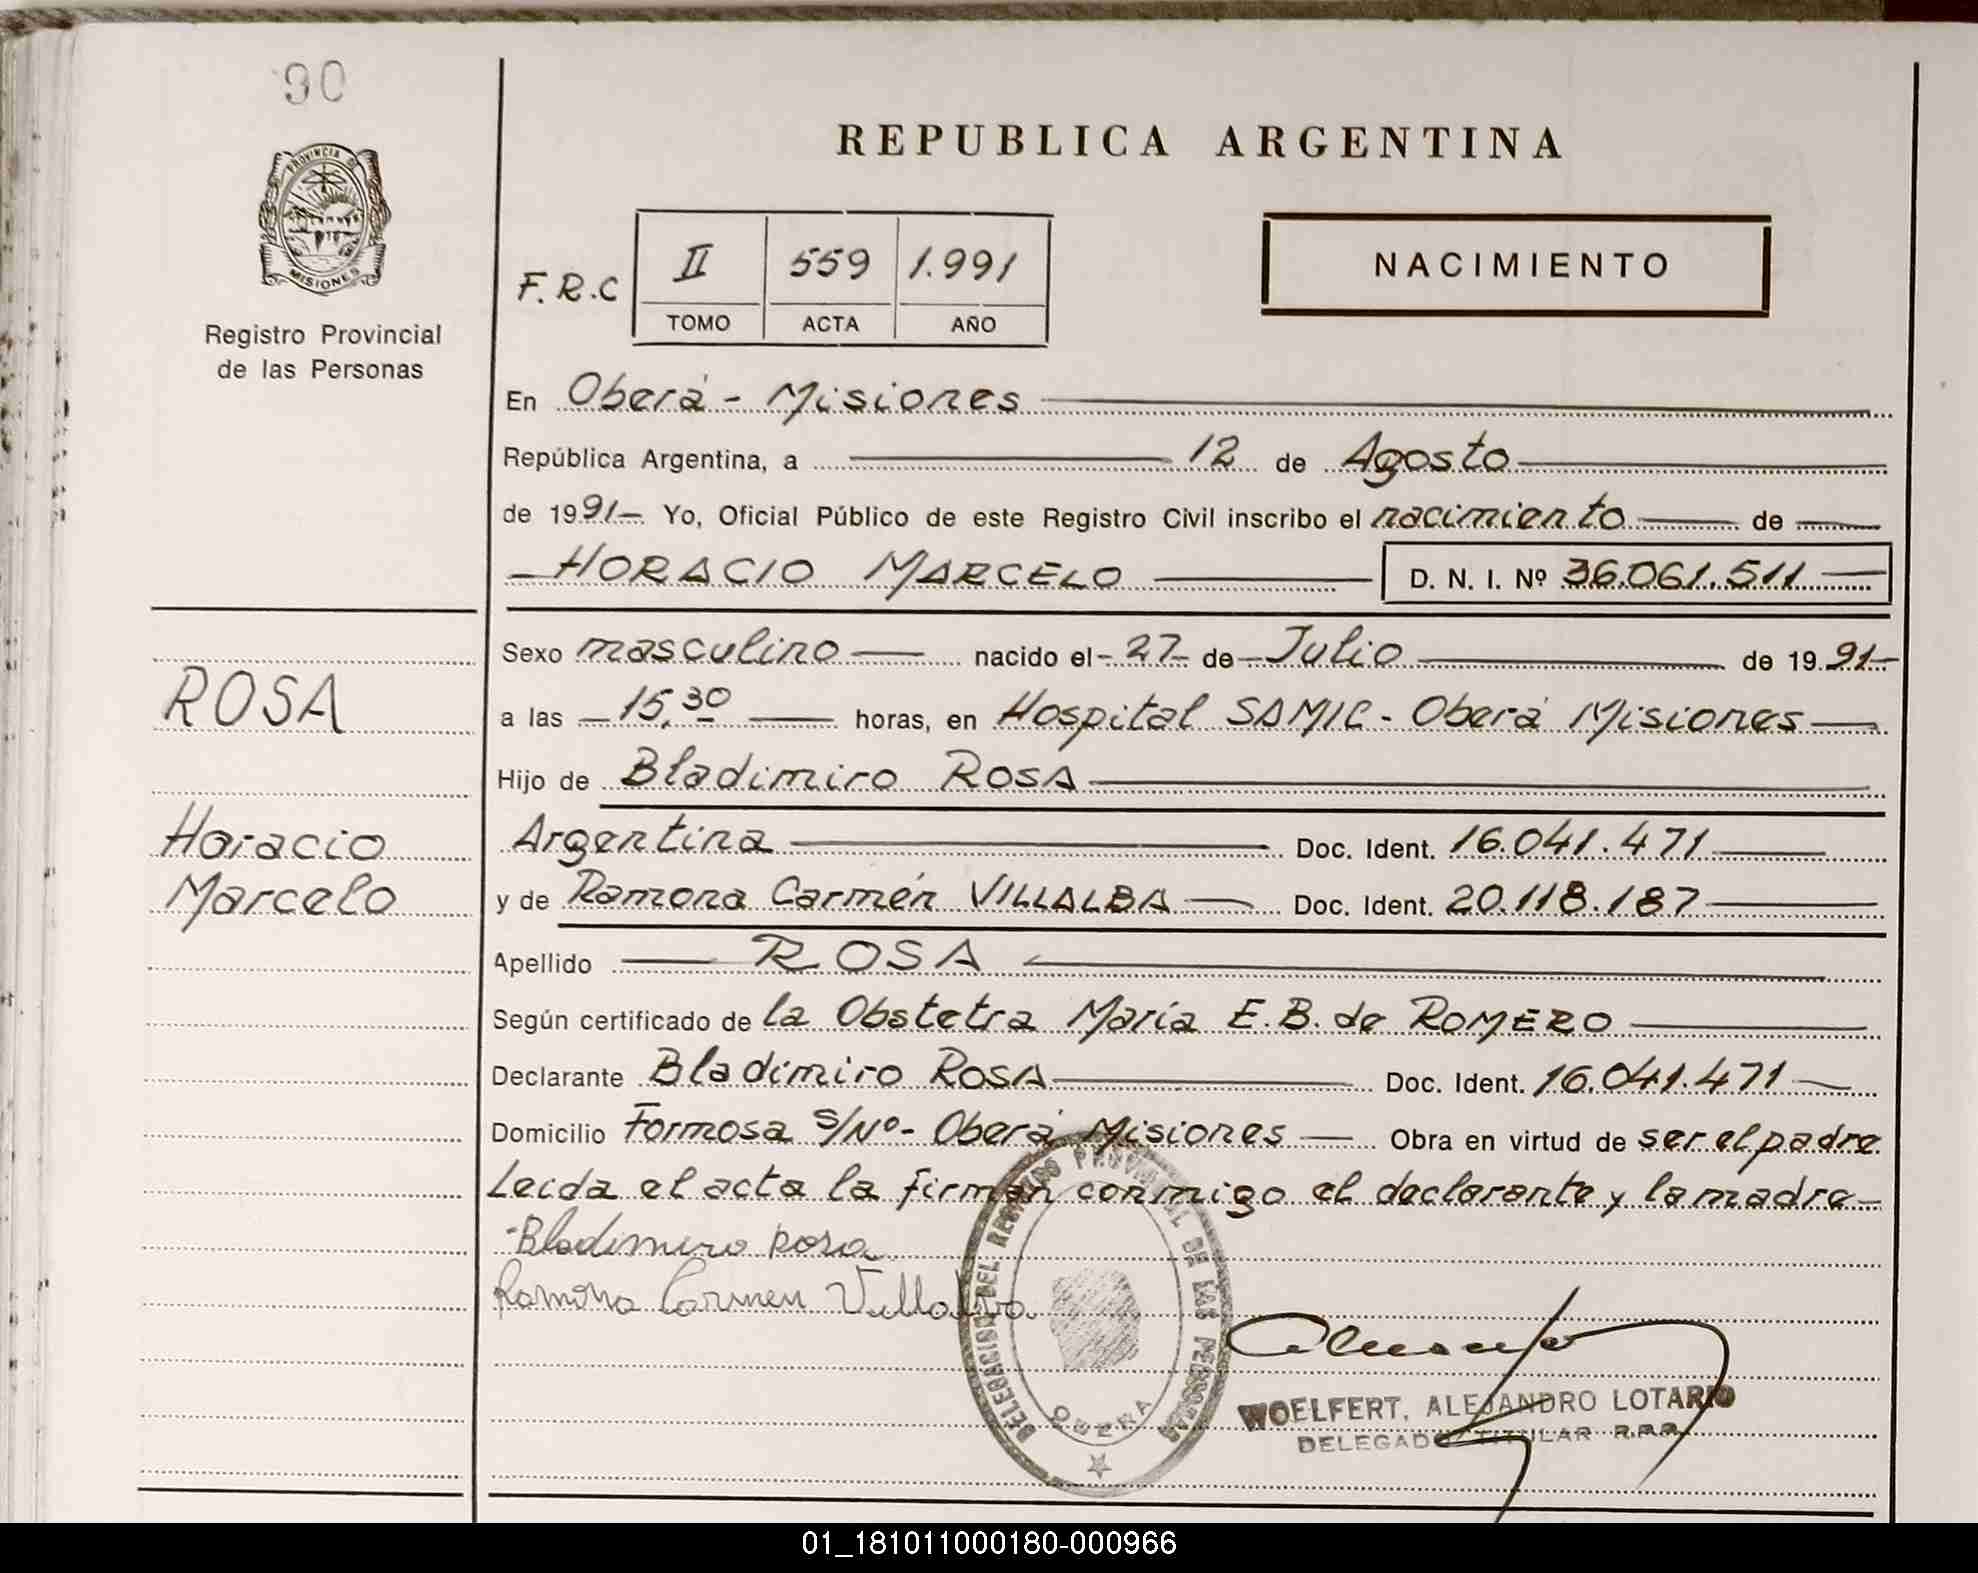 90
REPUBLICA ARGENTINA
PROVINCIA DE
MISIONES
Registro Provincial
de las Personas
F.R.C
II 559 1.991
TOMO ACTA AÑO
NACIMIENTO
En Oberá - Misiones
República Argentina, a 12 de Agosto
de 1991- Yo, Oficial Público de este Registro Civil inscribo el nacimiento de
HORACIO MARCELO D. N. I. Nº 36.061.511
Sexo masculino nacido el - 27 - de Julio de 1991-
a las 15,30 horas, en Hospital SAMIC - Oberá Misiones
Hijo de Bladimiro ROSA
Argentina Doc. Ident. 16.041.471
y de Ramona Carmén VILLALBA Doc. Ident. 20.118.187
Apellido ROSA
Según certificado de la Obstetra María E.B. de ROMERO
Declarante Bladimiro ROSA Doc. Ident. 16.041.471
Domicilio Formosa S/Nº - Oberá Misiones Obra en virtud de ser el padre
Leída el acta la firman conmigo el declarante y la madre
Bladimiro Rosa
Ramona Carmen Villalva
ROSA
Horacio
Marcelo
DELEGACION DEL REGISTRO PROVINCIAL DE LAS PERSONAS
OBERA
WOELFERT, ALEJANDRO LOTARIO
DELEGADO TITULAR R.P.P.
01_181011000180-000966